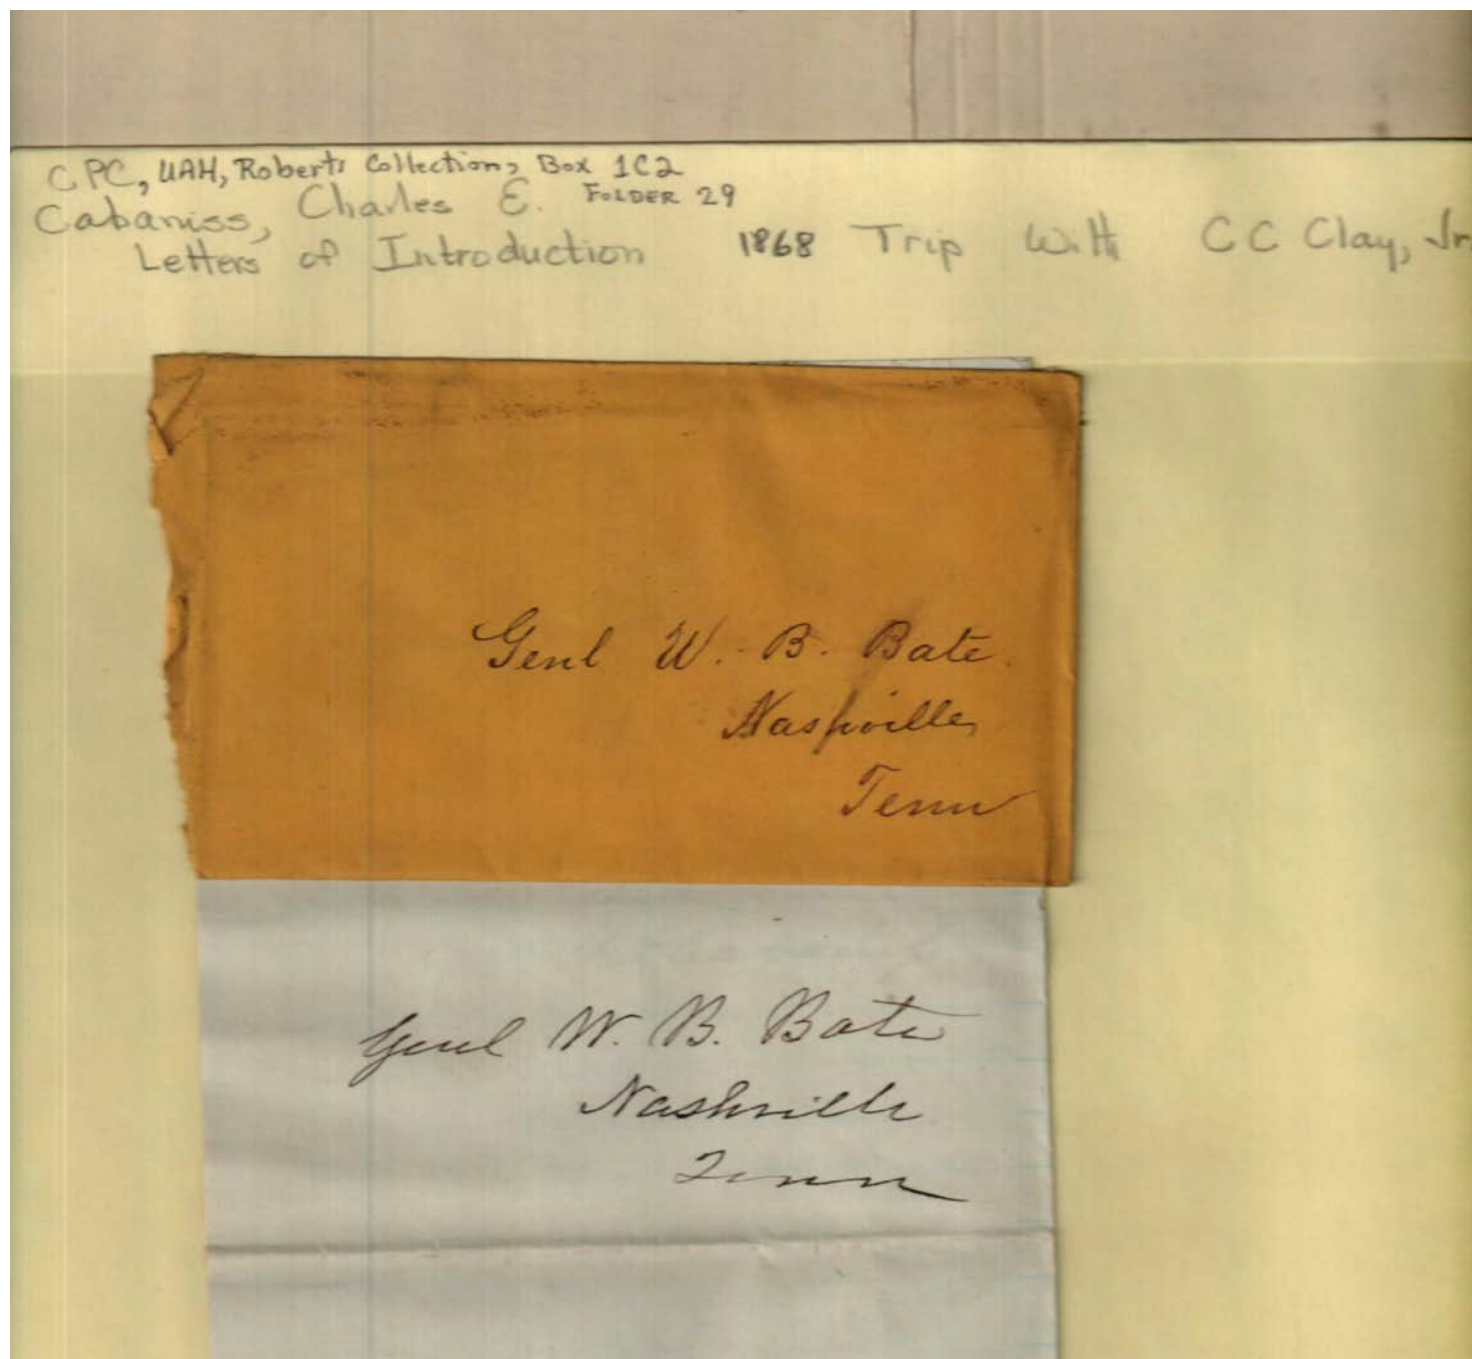 CPC, UAH, Roberts Collection, Box 1C2
Cabaniss, Charles E. FOLDER 29
Letters of Introduction 1868 Trip With CC Clay, Jr.
Genl W. B. Bate.
Nashville,
Tenn
Genl W. B. Bate
Nashville
Tenn